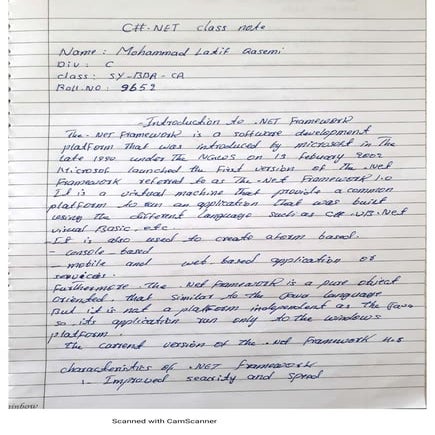 C#.NET class note
Name: Mohammad Latif Qasemi
Div: C
class: SY-BBA-CA
Roll.NO: 9652
-Introduction to .NET Framework
The .Net Framework is a software development
platform that was introduced by microsoft in The
late 1990 under The NGWS on 13 february 2002
Microsof launched the First version of The .Net
Framework referred to as The .Net Framework 1.0
It is a virtual machine that provide a common
platform to run an application that was built
using the different language such as C# .VB.Net
visual Basic, etc.
It is also used to create aform based.
- console-based
- mobile and web based application or
services.
furthermore The .Net framework is a pure object
oriented. That similar to the Java language
But it is not a platform independent as the Java
so, its application run only to the windows
platform.
The current version of the .Net Framework 4.8
characteristics of .NET framework
1- Improved security and speed
rainbow
Scanned with CamScanner